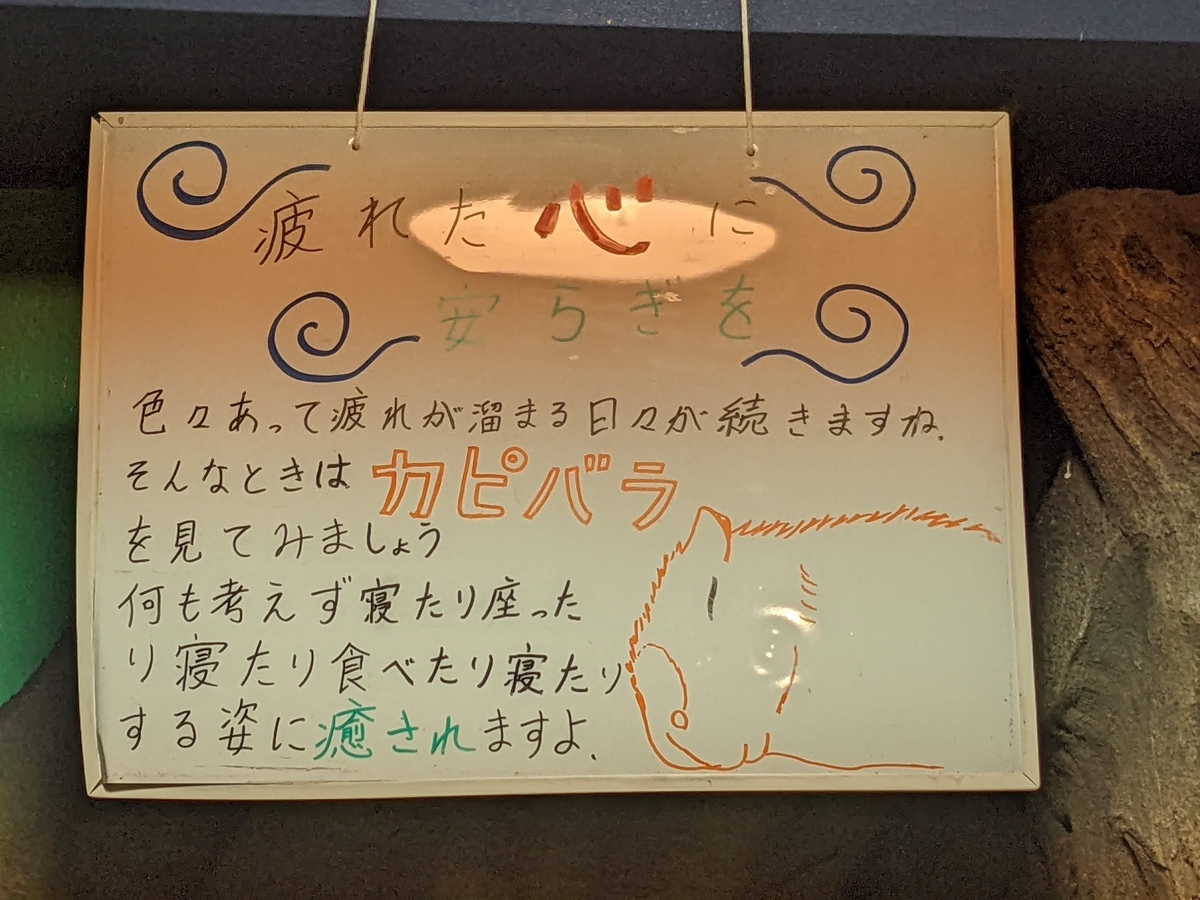 疲れた心に
安らぎを
色々あって疲れが溜まる日々が続きますね.
そんなときはカピバラ
を見てみましょう
何も考えず寝たり座った
り寝たり食べたり寝たり
する姿に癒されますよ.